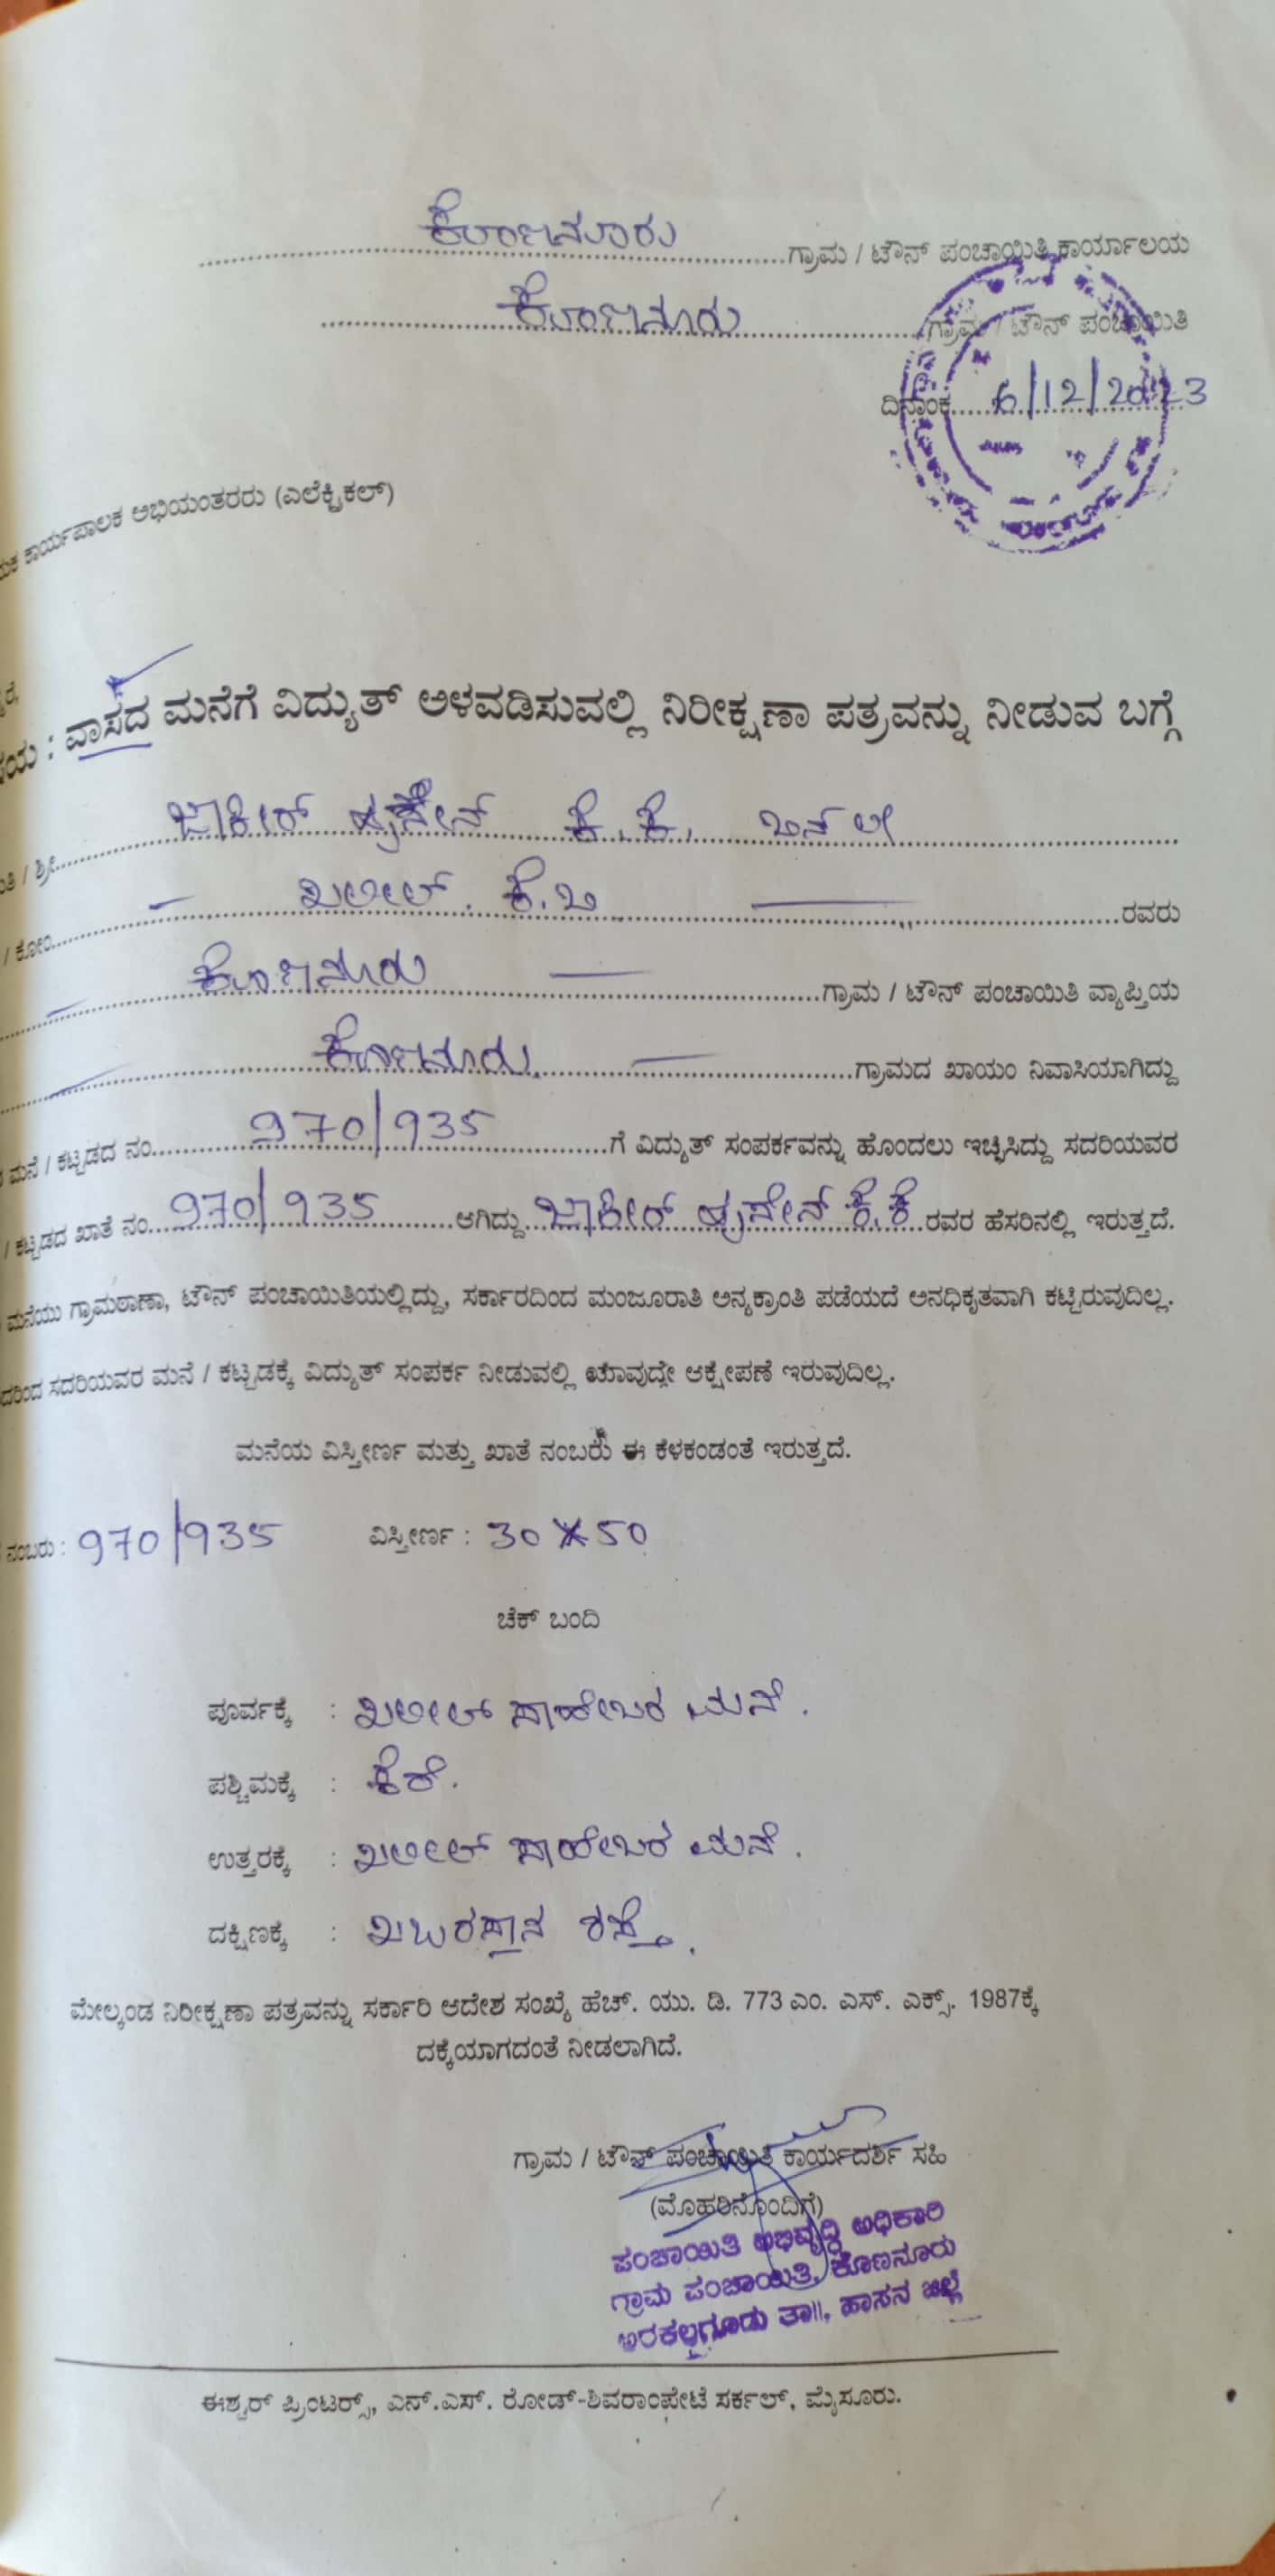 ಕೊಣನೂರು ಗ್ರಾಮ / ಟೌನ್ ಪಂಚಾಯಿತಿ ಕಾರ್ಯಾಲಯ
ಕೊಣನೂರು ಗ್ರಾಮ / ಟೌನ್ ಪಂಚಾಯಿತಿ
ದಿನಾಂಕ 6/12/2023
ಕಾರ್ಯಪಾಲಕ ಅಭಿಯಂತರರು (ಎಲೆಕ್ಟ್ರಿಕಲ್)
: ವಾಸದ ಮನೆಗೆ ವಿದ್ಯುತ್ ಅಳವಡಿಸುವಲ್ಲಿ ನಿರೀಕ್ಷಣಾ ಪತ್ರವನ್ನು ನೀಡುವ ಬಗ್ಗೆ
/ ಶ್ರೀ ಜಾಕೀರ್ ಹುಸೇನ್ ಕೆ.ಕೆ. ಬಿನ್
/ ಕೋಂ ಖಲೀಲ್. ಕೆ.ಬಿ ರವರು
ಕೊಣನೂರು ಗ್ರಾಮ / ಟೌನ್ ಪಂಚಾಯಿತಿ ವ್ಯಾಪ್ತಿಯ
ಕೊಣನೂರು ಗ್ರಾಮದ ಖಾಯಂ ನಿವಾಸಿಯಾಗಿದ್ದು
ಮನೆ / ಕಟ್ಟಡದ ನಂ. 970/935 ಗೆ ವಿದ್ಯುತ್ ಸಂಪರ್ಕವನ್ನು ಹೊಂದಲು ಇಚ್ಛಿಸಿದ್ದು ಸದರಿಯವರ
/ ಕಟ್ಟಡದ ಖಾತೆ ನಂ. 970/935 ಆಗಿದ್ದು ಜಾಕೀರ್ ಹುಸೇನ್ ಕೆ.ಕೆ ರವರ ಹೆಸರಿನಲ್ಲಿ ಇರುತ್ತದೆ.
ಮನೆಯು ಗ್ರಾಮಠಾಣಾ, ಟೌನ್ ಪಂಚಾಯಿತಿಯಲ್ಲಿದ್ದು, ಸರ್ಕಾರದಿಂದ ಮಂಜೂರಾತಿ ಅನ್ಯಕ್ರಾಂತಿ ಪಡೆಯದೆ ಅನಧಿಕೃತವಾಗಿ ಕಟ್ಟಿರುವುದಿಲ್ಲ.
ಸದರಿಯವರ ಮನೆ / ಕಟ್ಟಡಕ್ಕೆ ವಿದ್ಯುತ್ ಸಂಪರ್ಕ ನೀಡುವಲ್ಲಿ ಯಾವುದೇ ಆಕ್ಷೇಪಣೆ ಇರುವುದಿಲ್ಲ.
ಮನೆಯ ವಿಸ್ತೀರ್ಣ ಮತ್ತು ಖಾತೆ ನಂಬರು ಈ ಕೆಳಕಂಡಂತೆ ಇರುತ್ತದೆ.
ನಂಬರು : 970/935 ವಿಸ್ತೀರ್ಣ : 30 X 50
ಚೆಕ್ ಬಂದಿ
ಪೂರ್ವಕ್ಕೆ : ಖಲೀಲ್ ಸಾಹೇಬರ ಮನೆ.
ಪಶ್ಚಿಮಕ್ಕೆ : ಕೆರೆ.
ಉತ್ತರಕ್ಕೆ : ಖಲೀಲ್ ಸಾಹೇಬರ ಮನೆ.
ದಕ್ಷಿಣಕ್ಕೆ : ಖಬರಸ್ತಾನ ರಸ್ತೆ.
ಮೇಲ್ಕಂಡ ನಿರೀಕ್ಷಣಾ ಪತ್ರವನ್ನು ಸರ್ಕಾರಿ ಆದೇಶ ಸಂಖ್ಯೆ ಹೆಚ್. ಯು. ಡಿ. 773 ಎಂ. ಎಸ್. ಎಕ್ಸ್. 1987ಕ್ಕೆ
ದಕ್ಕೆಯಾಗದಂತೆ ನೀಡಲಾಗಿದೆ.
ಗ್ರಾಮ / ಟೌನ್ ಪಂಚಾಯಿತಿ ಕಾರ್ಯದರ್ಶಿ ಸಹಿ
(ಮೊಹರಿನೊಂದಿಗೆ)
ಪಂಚಾಯಿತಿ ಅಭಿವೃದ್ಧಿ ಅಧಿಕಾರಿ
ಗ್ರಾಮ ಪಂಚಾಯಿತಿ, ಕೊಣನೂರು
ಅರಕಲಗೂಡು ತಾ||, ಹಾಸನ ಜಿಲ್ಲೆ
ಈಶ್ವರ್ ಪ್ರಿಂಟರ್ಸ್, ಎನ್.ಎಸ್. ರೋಡ್-ಶಿವರಾಂಪೇಟೆ ಸರ್ಕಲ್, ಮೈಸೂರು.